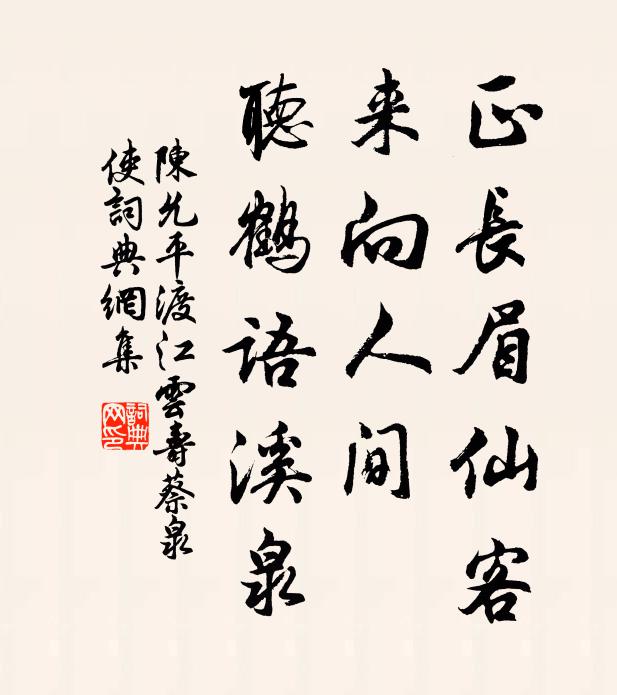 正長眉仙客
来向人間
聽鶴語溪泉
陳允平渡江雲壽蔡泉
使詞典網集
詞典网印